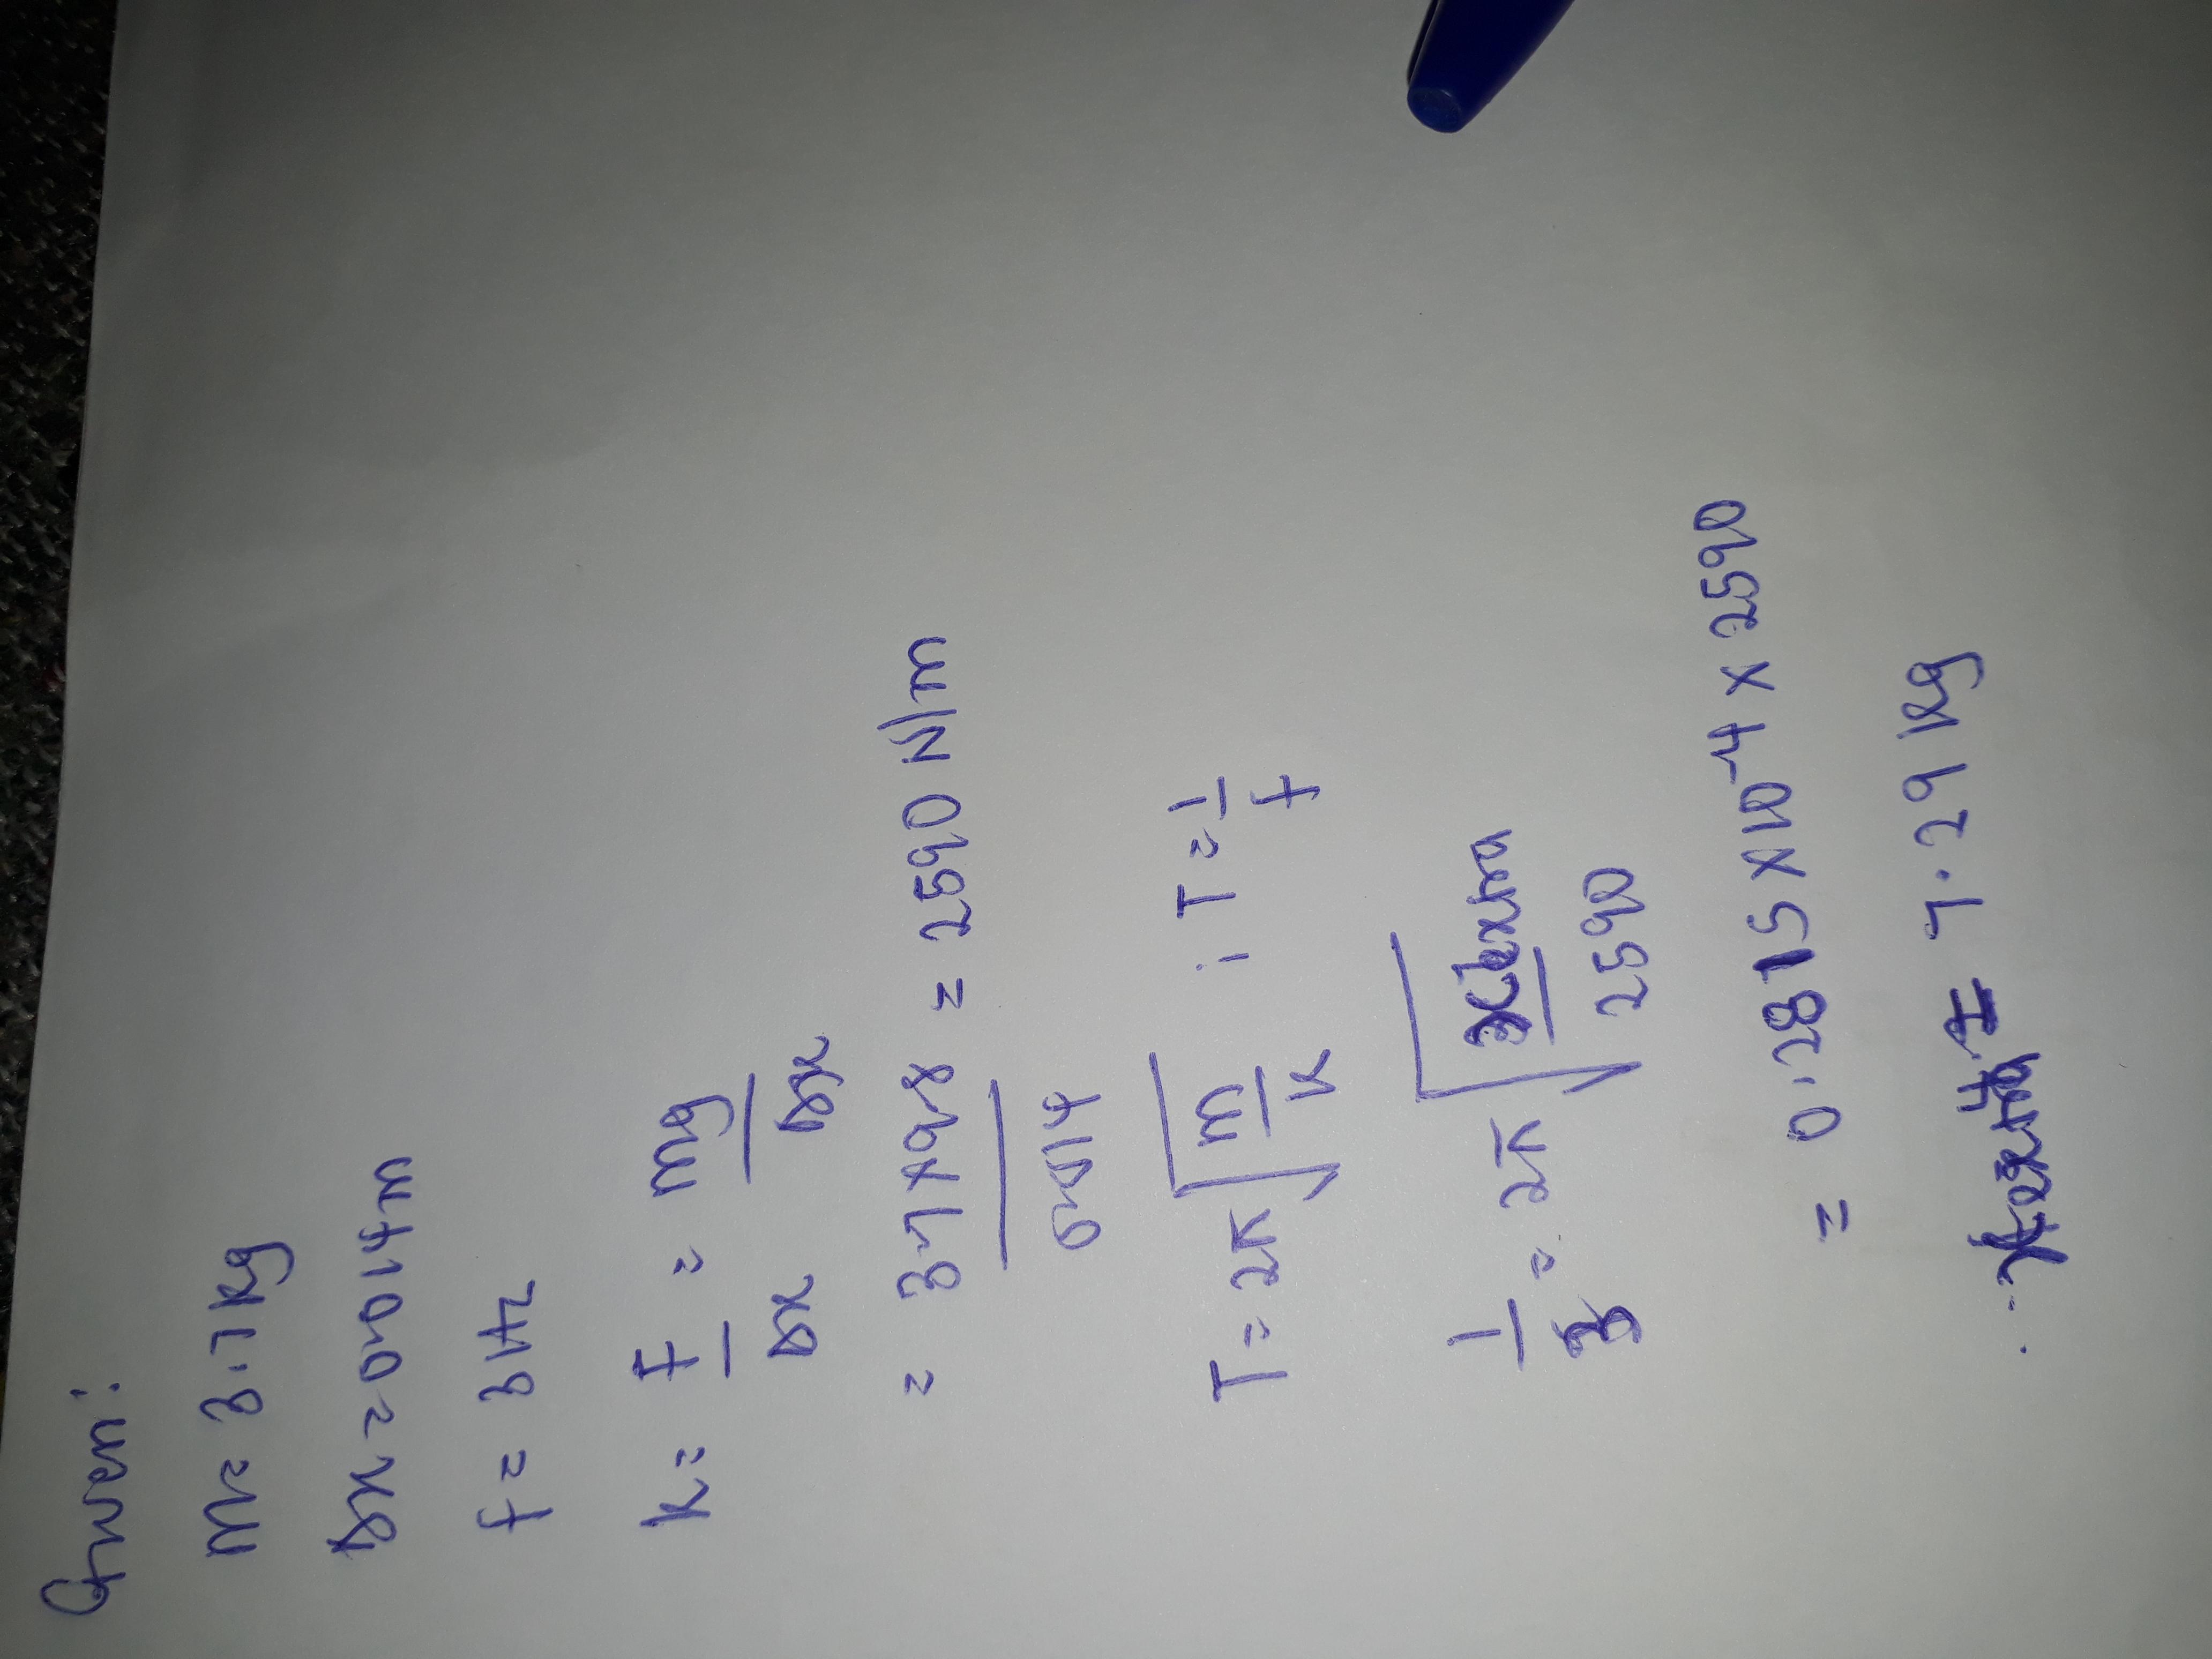 Given:
m = 3.7 Kg
δx = 0.014m
f = 3Hz
K = F/δx = mg/δx
= 3.7 x 9.8/0.014 = 2590 N/m
T = 2π √m/K ; T = 1/f
1/3 = 2π √ /2590
= 0.2815 x 10^-4 x 2590
∴ = 7.29 Kg